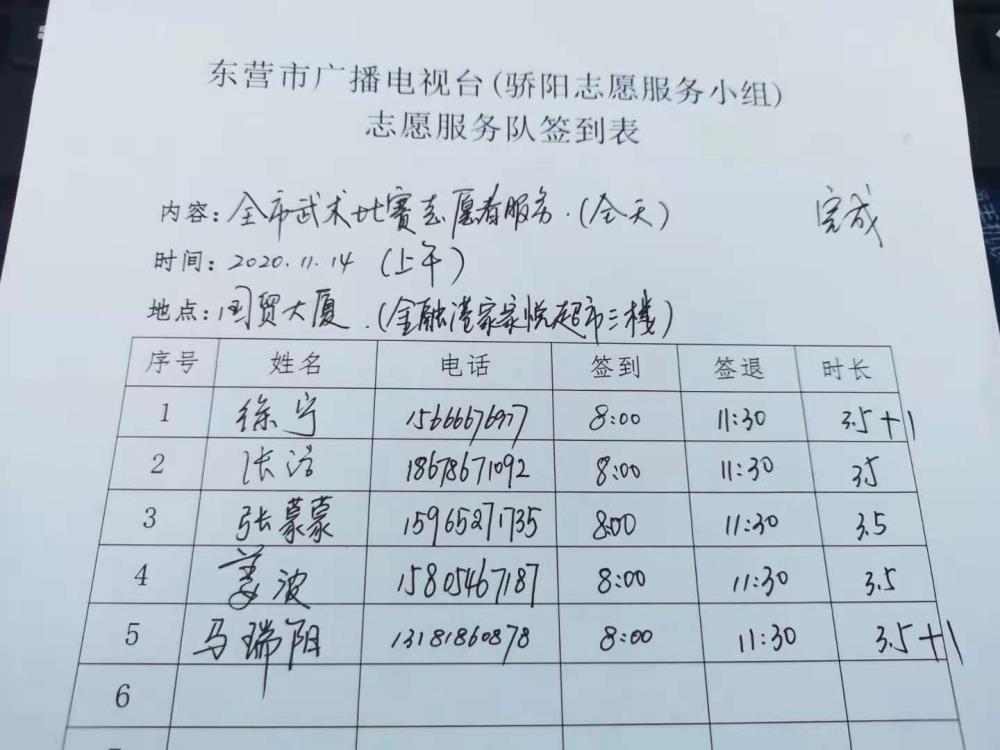 东营市广播电视台(骄阳志愿服务小组)
志愿服务队签到表
内容:全市武术比赛志愿者服务.(全天) 完成
时间:2020.11.14 (上午)
地点:国贸大厦.(金融港家家悦超市三楼)
序号 姓名 电话 签到 签退 时长
1 徐宁 15666676977 8:00 11:30 3.5+1
2 张洁 18678671092 8:00 11:30 3.5
3 张蒙蒙 15965271735 8:00 11:30 3.5
4 姜波 15805467187 8:00 11:30 3.5
5 马瑞阳 13181860878 8:00 11:30 3.5+1
6